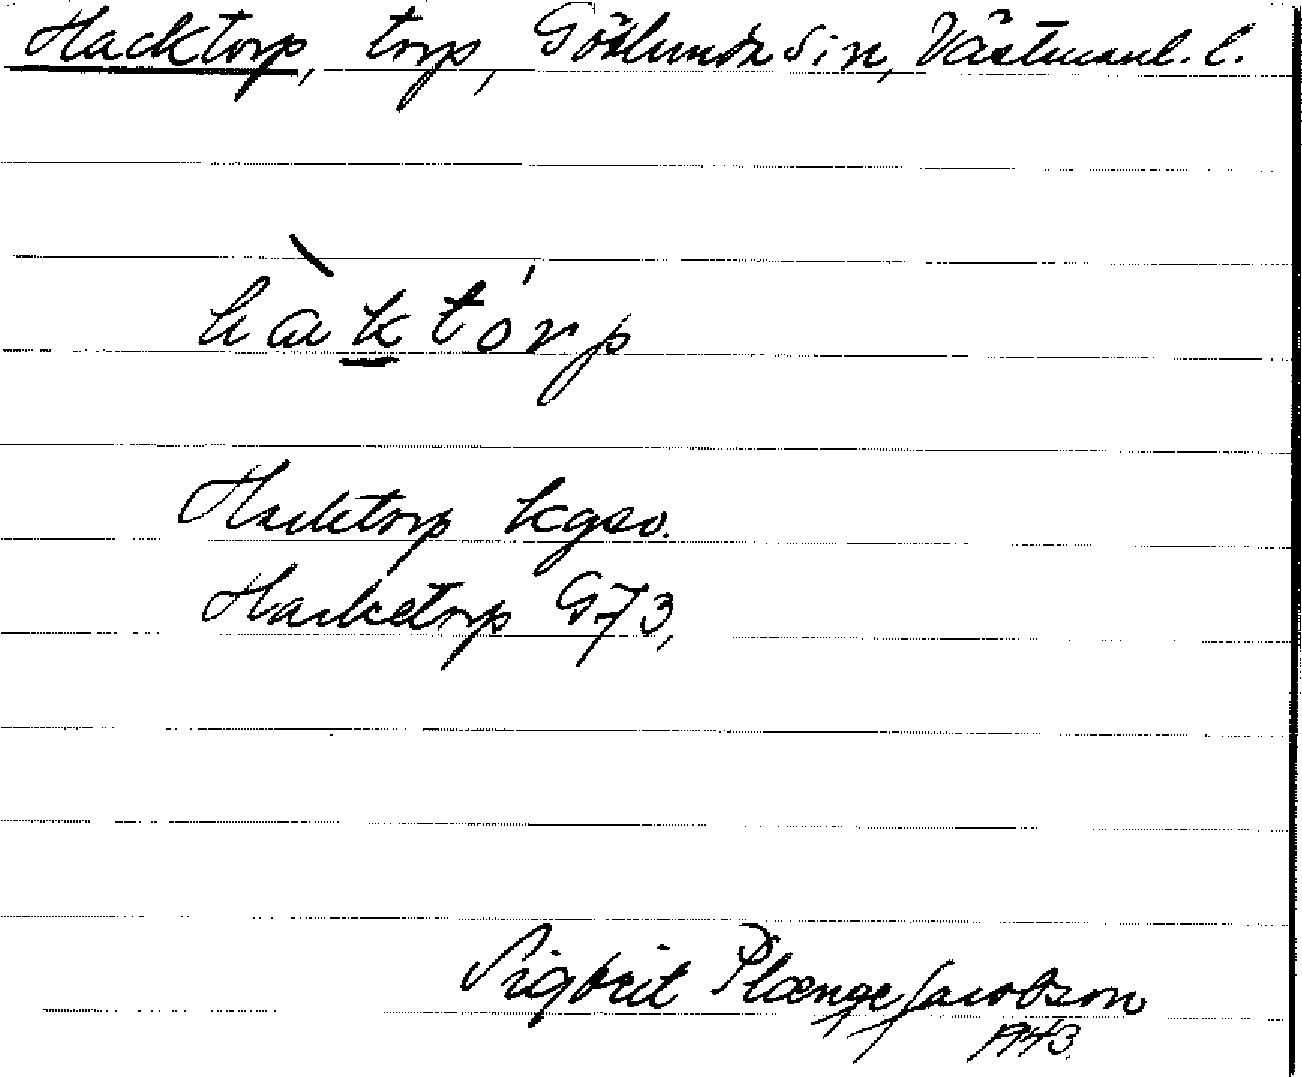 Hacktorp, torp, Götlunda sn, Västmanl. l.
hàktórp
Hacktorp kgso.
Hacketorp G73,
Sigbrit Plænge Jacobson
1943.